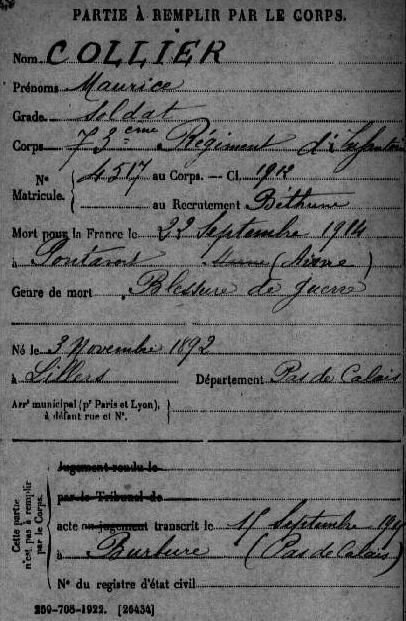 PARTIE À REMPLIR PAR LE CORPS.
Nom COLLIER
Prénoms Maurice
Grade Soldat
Corps 73eme Régiment d'Infanterie
N° Matricule. { 4517 au Corps. — Cl. 1912
au Recrutement Béthune
Mort pour la France le 22 Septembre 1914
à Pontavert (Aisne)
Genre de mort Blessure de guerre
Né le 3 Novembre 1892
à Lillers Département Pas de Calais
Arrt municipal (pr Paris et Lyon), à défaut rue et N°. }
Cette partie n'est pas à remplir par le Corps.
Jugement rendu le
par le Tribunal de
acte ou jugement transcrit le 15 Septembre
à Burbure (Pas de Calais)
N° du registre d'état civil
259-708-1922. [26434]